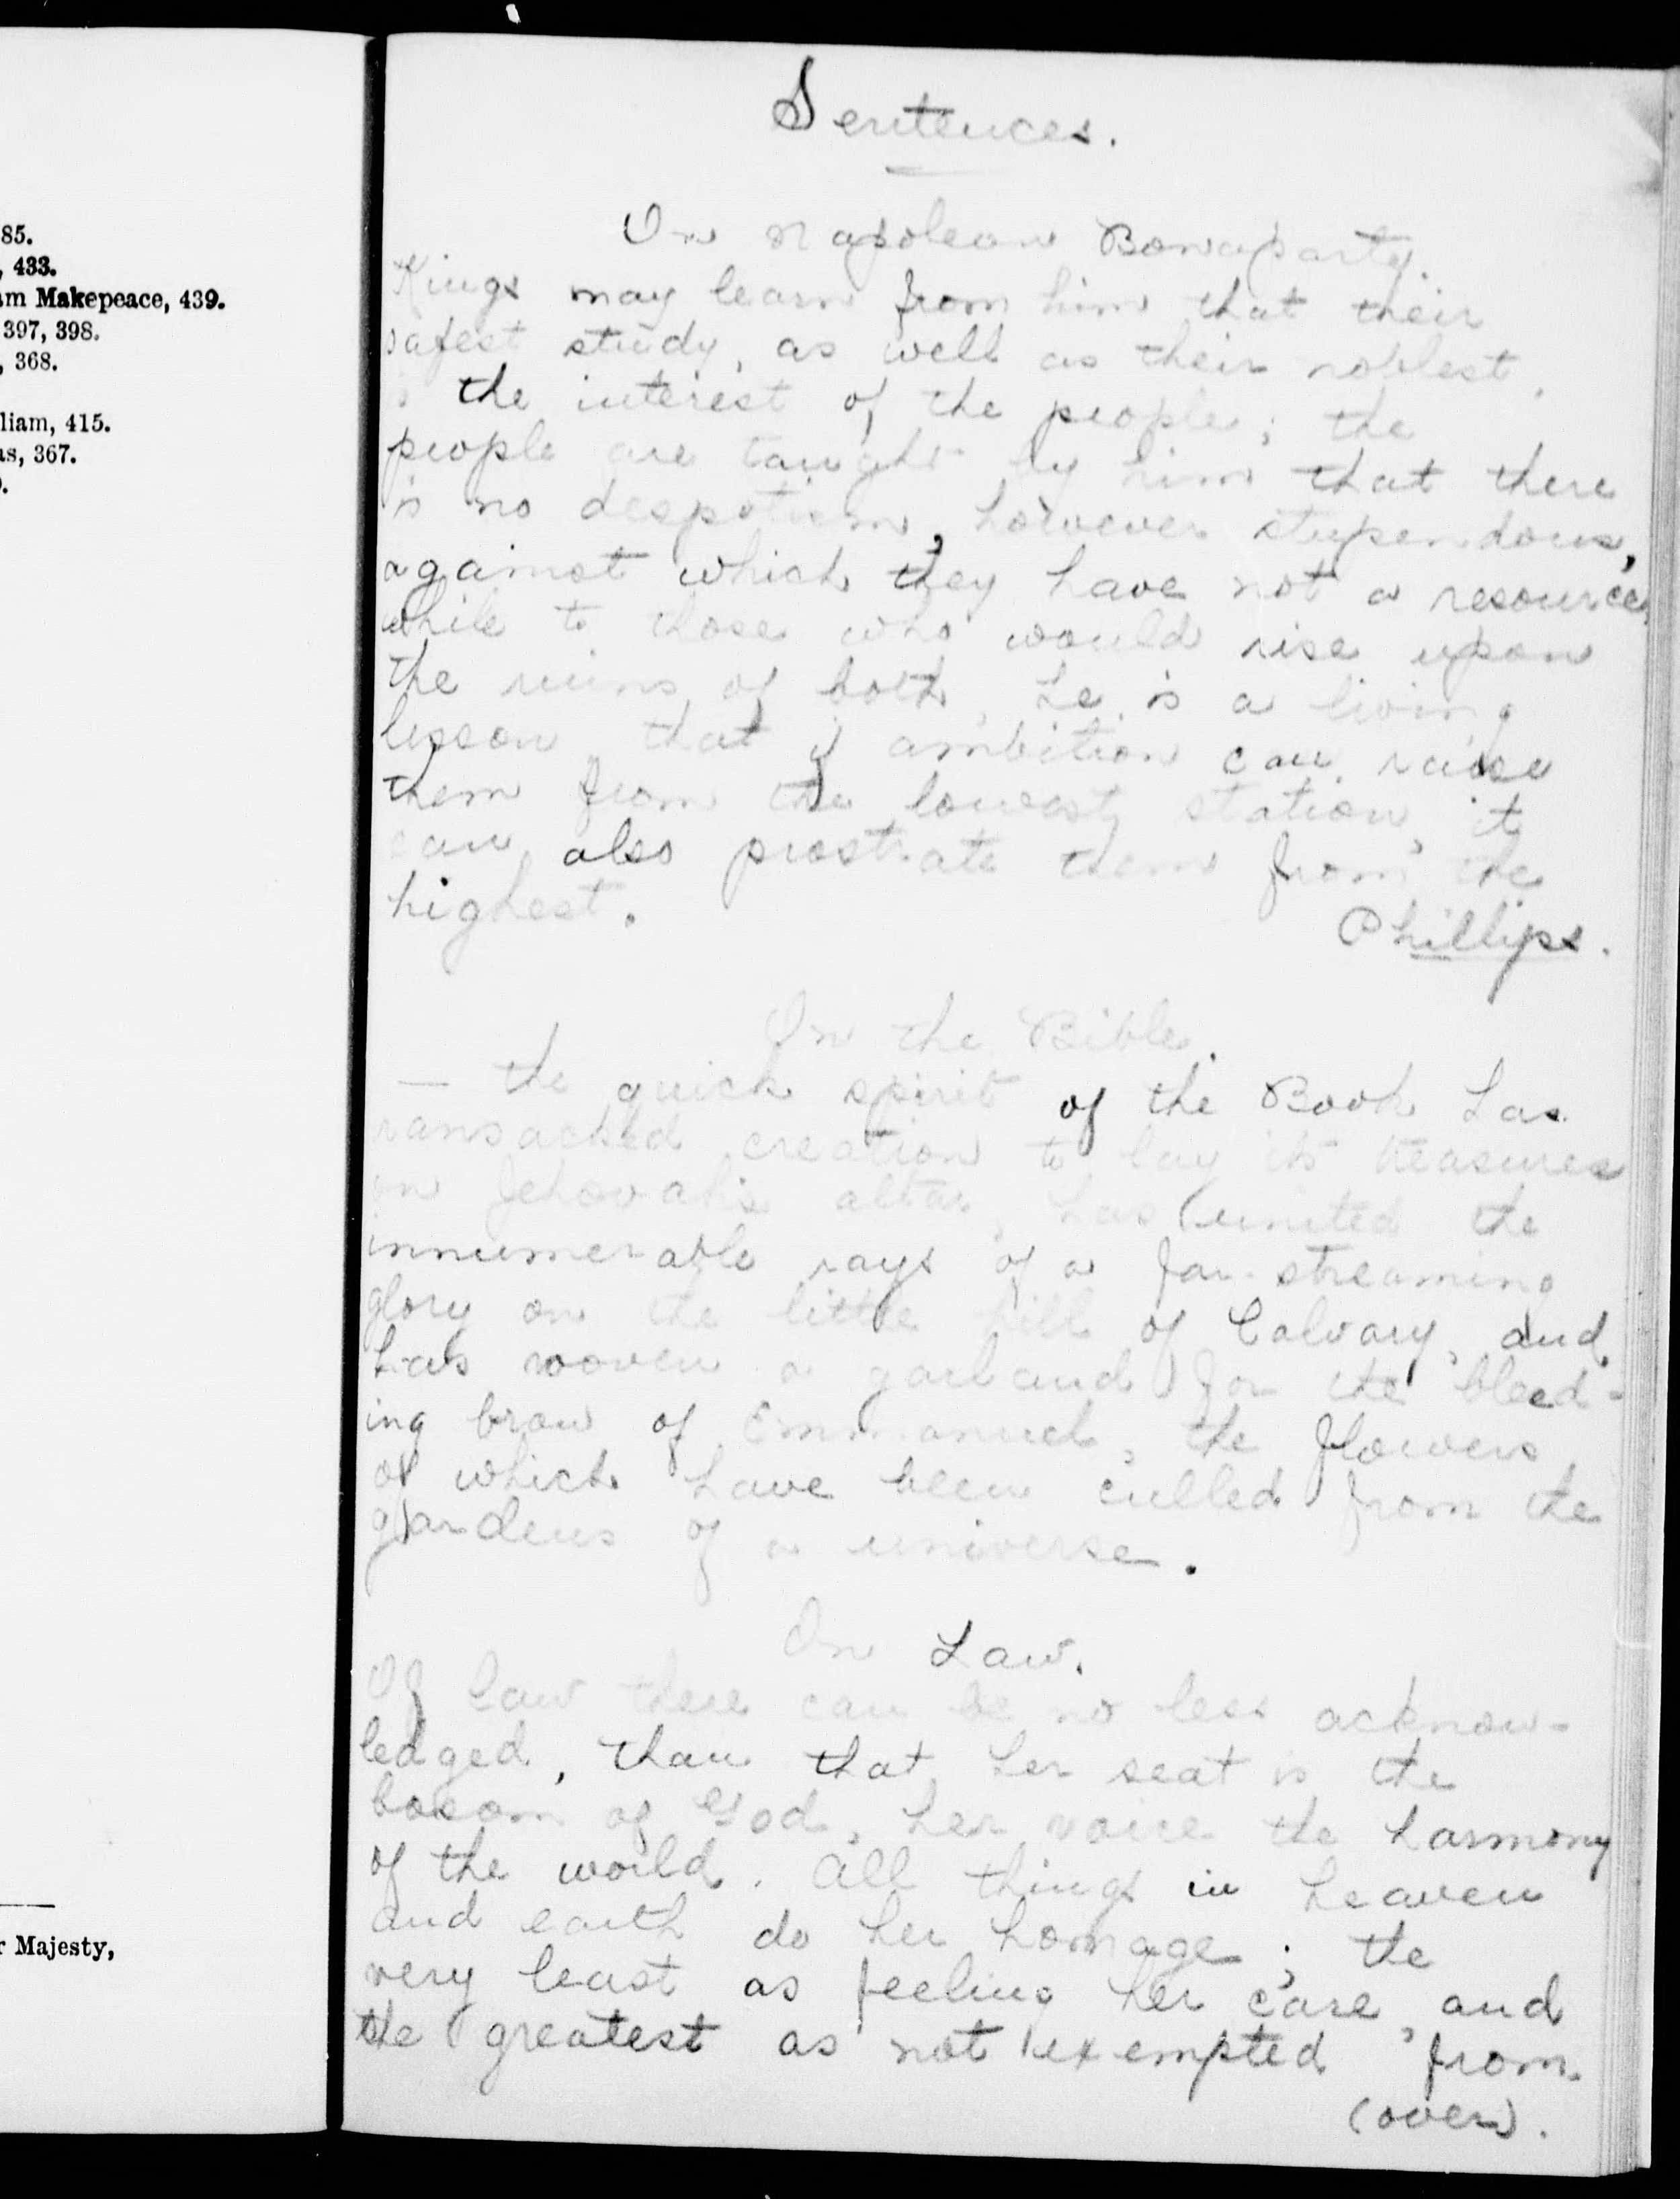 85.
, 433.
am Makepeace, 439.
397, 398.
, 368.
liam, 415.
as, 367.
r Majesty,
Sentences.
On Napoleon Bonaparty.
Kings may learn from him that their
safest study, as well as their noblest,
is the interest of the people; the
people are taught by him that there
is no despotism, however stupendous,
against which they have not a resource,
while to those who would rise upon
the ruins of both, he is a living
lesson that if ambition can raise
them from the lowest station, it
can also prostrate them from the
highest.
Phillips.
On the Bible.
— the quick spirit of the Book has
ransacked creation to lay its treasures
on Jehovah's altar, has united the
innumerable rays of a far-streaming
glory on the little hill of Calvary, and
has woven a garland for the bleed-
ing brow of Emmanuel, the flowers
of which have been culled from the
gardens of a universe.
On Law.
Of Law there can be no less acknow-
ledged, than that her seat is the
bosom of God, her voice the harmony
of the world. All things in heaven
and earth do her homage; the
very least as feeling her care, and
the greatest as not exempted from
(over).